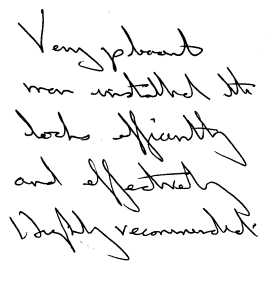 Very pleasant
man installed the
locks efficiently
and effectively
Highly recommended.